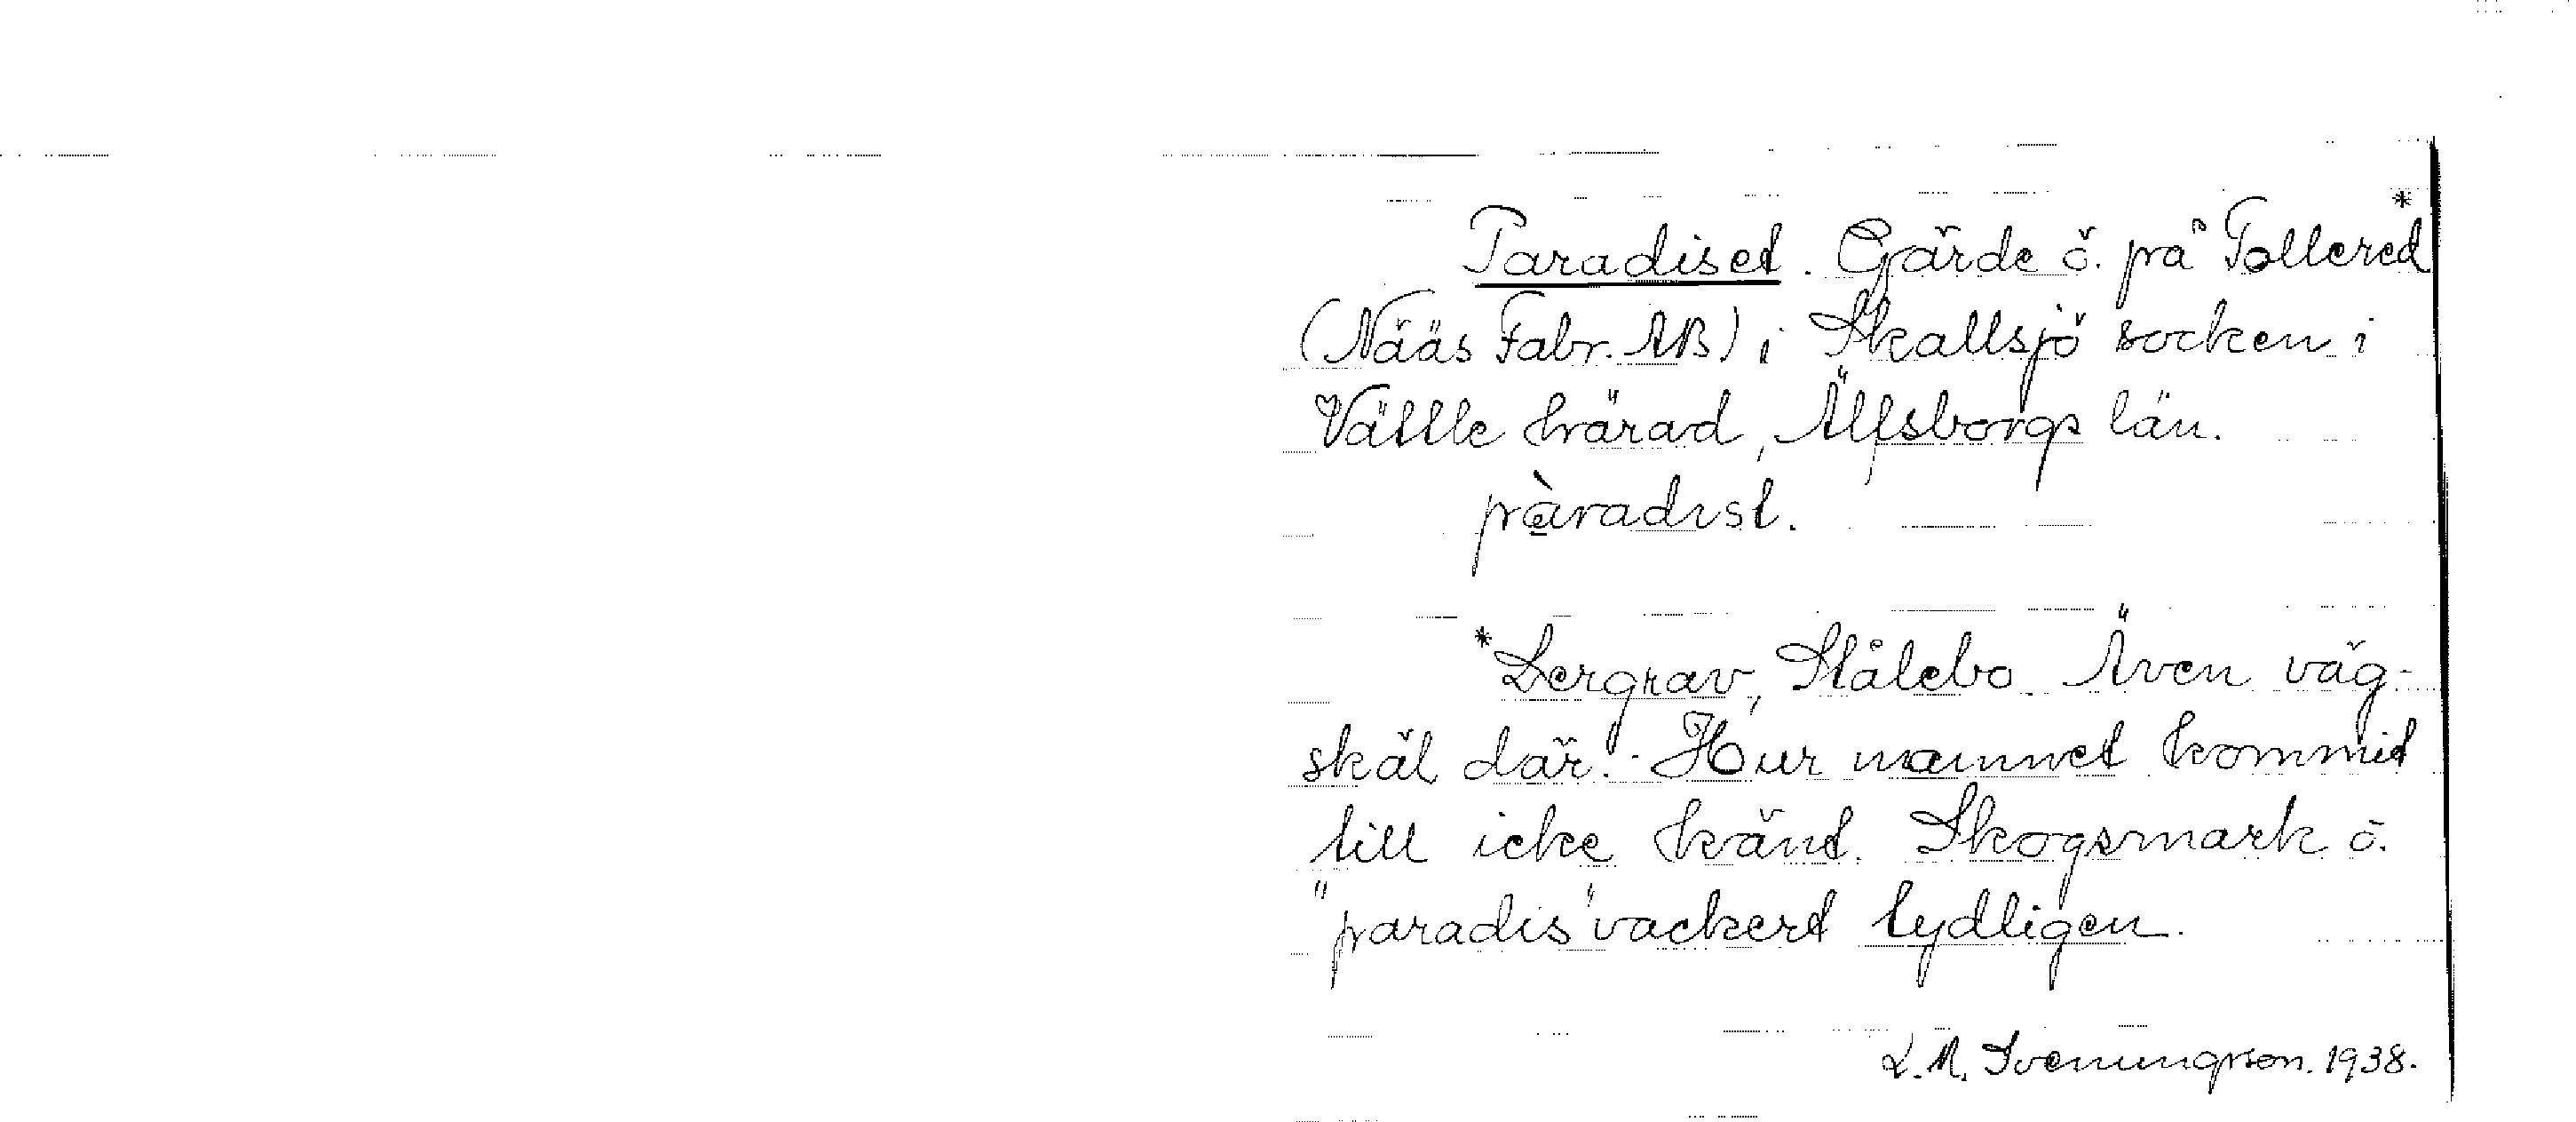 Paradiset. Gärde ö. på Tollered*
(Nääs Fabr. AB) i Skallsjö socken i
Vättle härad, Älfsborgs län.
pàradist.
*Lergrav, Stålebo. Även väg-
skäl där. - Hur namnet kommit
till icke känt. Skogsmark ö.
"paradis" vackert tydligen.
L. M. Svenungsson. 1938.